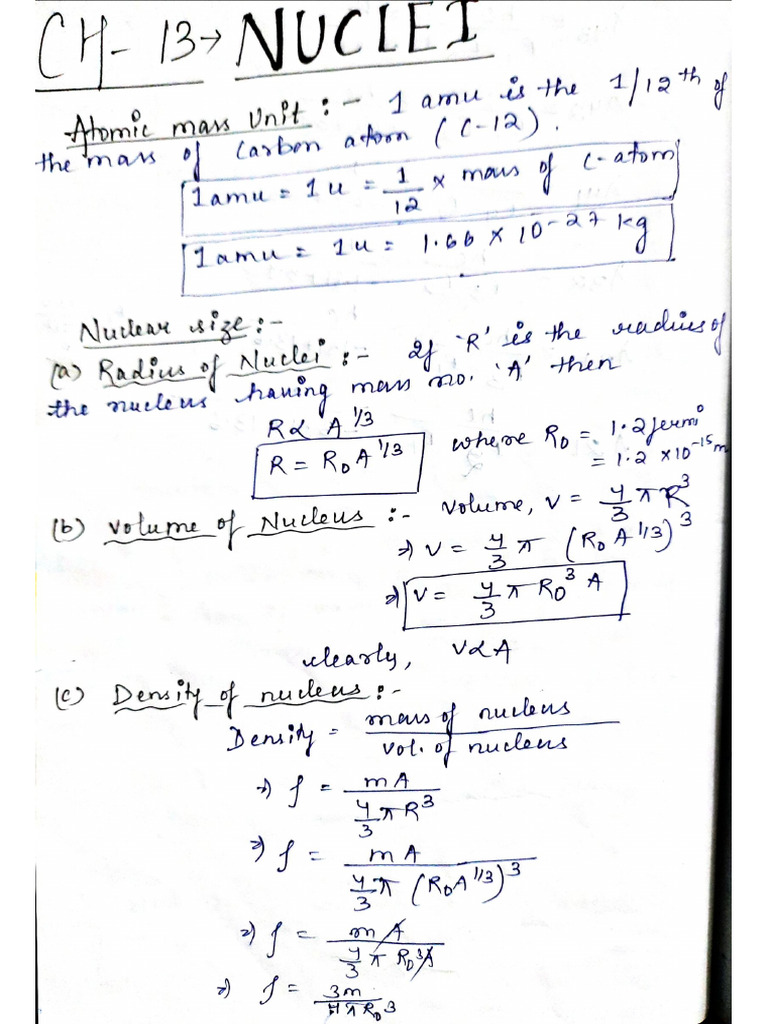 CH-13→ NUCLEI
Atomic mass Unit :- 1 amu is the 1/12th of
the mass of carbon atom (C-12).
1 amu = 1u = 1/12 × mass of C-atom
1 amu = 1u = 1.66 × 10^-27 kg
Nuclear size :-
(a) Radius of Nuclei :- If 'R' is the radius of
the nucleus having mass no. 'A' then
R ∝ A^1/3
R = R₀A^1/3 where R₀ = 1.2 fermi
= 1.2 × 10^-15 m
(b) Volume of Nucleus :- Volume, V = 4/3 π R^3
⇒ V = 4/3 π (R₀ A^1/3)^3
⇒ V = 4/3 π R₀^3 A
clearly, V ∝ A
(c) Density of nucleus :-
Density = mass of nucleus / vol. of nucleus
⇒ ρ = mA / 4/3 π R^3
⇒ ρ = mA / 4/3 π (R₀A^1/3)^3
⇒ ρ = mA / 4/3 π R₀^3 A
⇒ ρ = 3m / 4πR₀^3